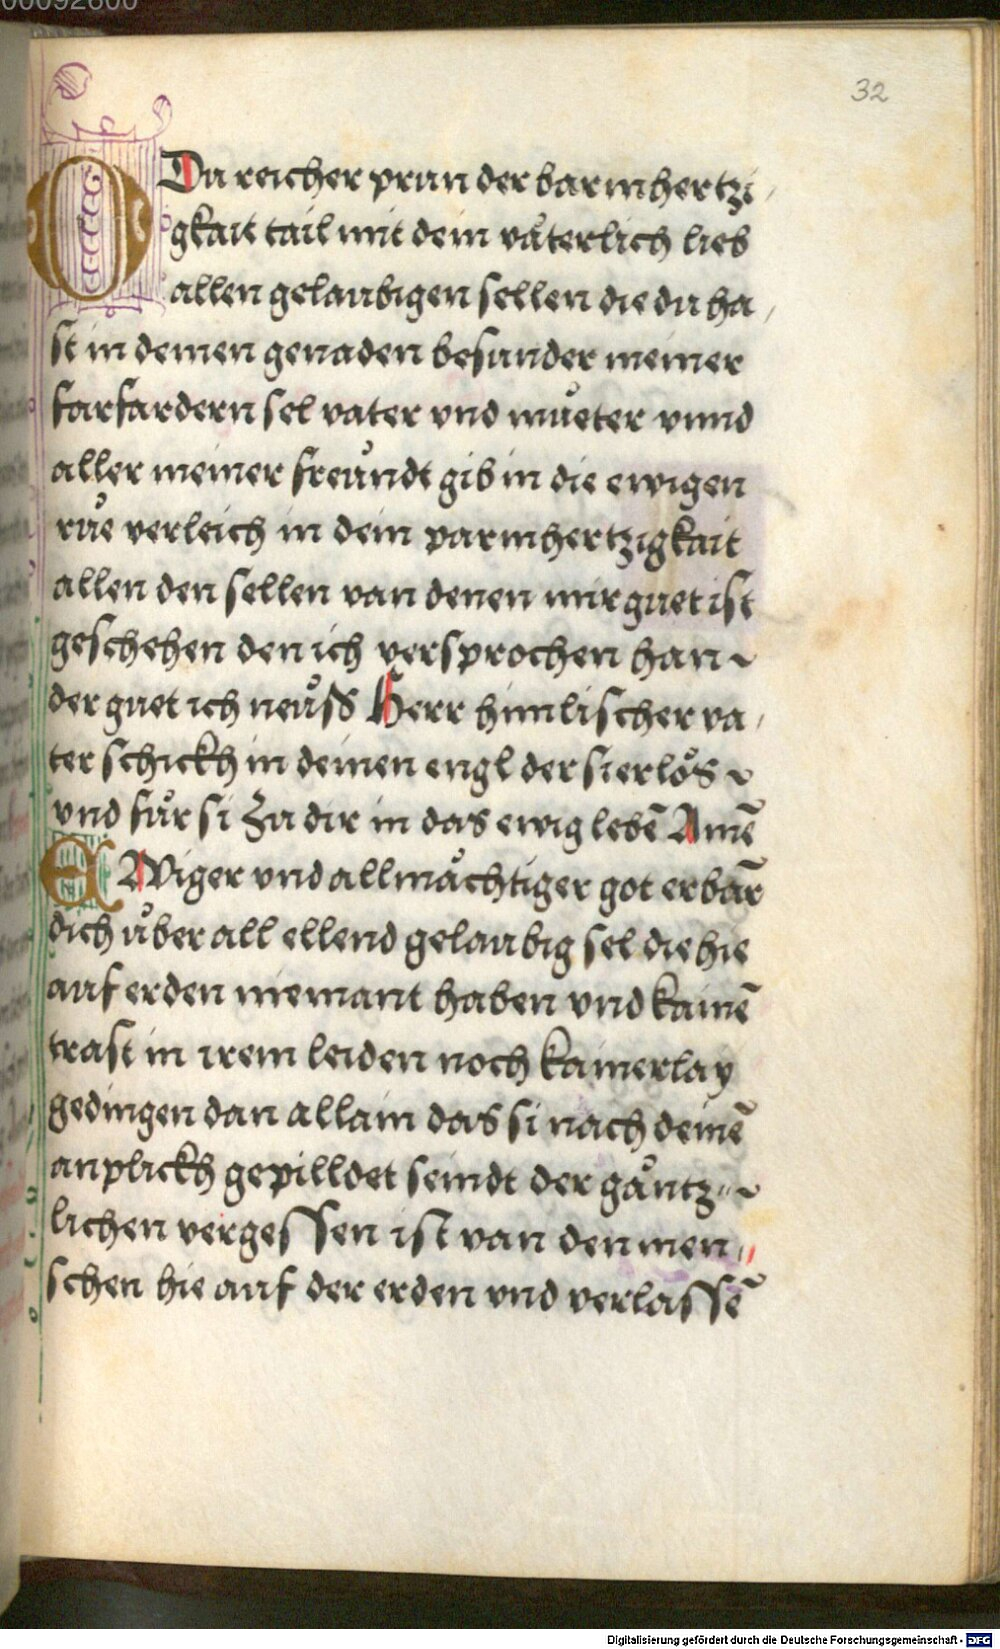 00092600
32
O Du reicher prun der barmhertzi,
gkait tail mit dein våterlich lieb
allen gelaubigen sellen die du ha,
st in deinen genaden besunder meiner
farfardern sel vater vnd můeter vnnd
aller meiner freůndt gib in die ewigen
růe verleich in dein parmhertzigkait
allen den sellen van denen mir guet ist
geschehen den ich versprochen han ~
der guet ich neůss Herr himlischer va,
ter schickh in deinen engl der si erlős ~
vnd får si Zu dir in das ewig lebē Amē
EWiger vnd allmåchtiger got erbar̄
dich ůber all ellend gelaubig sel die hie
auf erden niemant haben vnd kainē
trast in irem leiden noch kainerlay
gedingen dan allain das si nach deinē
anplickh gepilldet seindt der gåntz ~
lichen vergessen ist van den men,,
schen hie auf der erden vnd verlassē
Digitalisierung gefördert durch die Deutsche Forschungsgemeinschaft - DFG